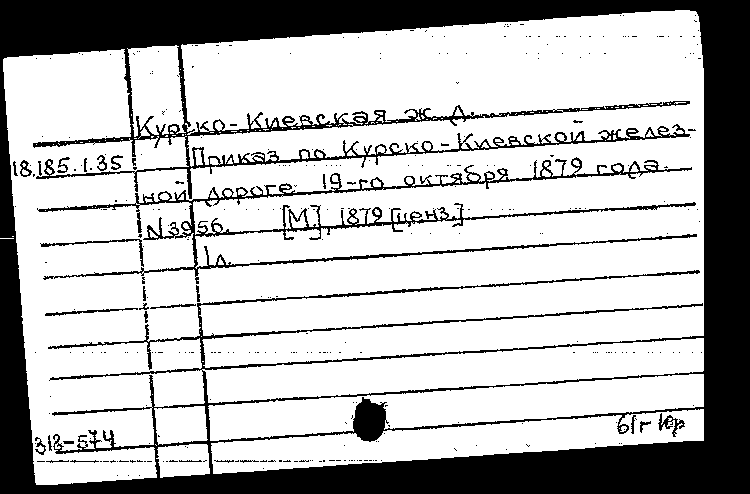 Курско-Киевская ж. д.
18.185.1.35 Приказ по Курско-Киевской желез-
ной дороге 19-го октября 1879 года.
N 3956. [М], 1879 [ценз.]
1 л.
313-574
61г Юр